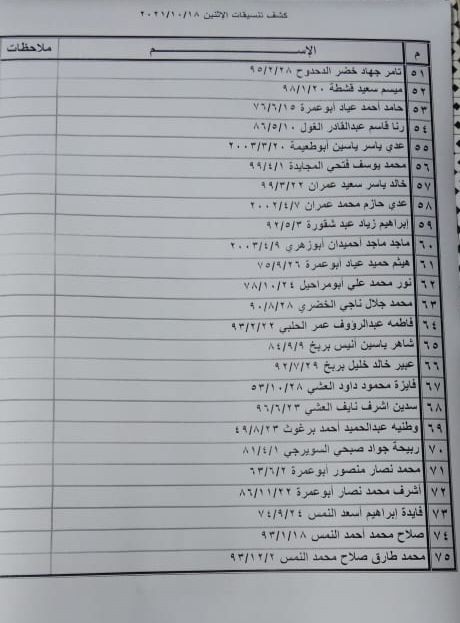 كشف تنسيقات الإثنين ٢٠٢١/١٠/١٨
م الإســـــــم ملاحظات
٥١ تامر جهاد خضر الدحدوح ٩٥/٢/٢٨
٥٢ ميسم سعيد قشطة ٩٨/١/٢٠
٥٣ حامد أحمد عياد أبوعمرة ٧٦/٦/١٥
٥٤ رنا قاسم عبدالقادر الغول ٨٦/٥/١٠
٥٥ عدي ياسر ياسين أبوطعيمة ٢٠٠٣/٣/٢٠
٥٦ محمد يوسف فتحي المجايدة ٩٩/٤/١
٥٧ خالد ياسر سعيد عمران ٩٩/٣/٢٢
٥٨ عدي حازم محمد عمران ٢٠٠٢/٤/٧
٥٩ إبراهيم زياد عبد شقورة ٩٢/٥/٣
٦٠ ماجد ماجد أحميدان أبوزهري ٢٠٠٣/٤/٩
٦١ هيثم حميد عياد أبوعمرة ٧٥/٩/٢٦
٦٢ نور محمد علي أبومراحيل ٧٨/١٠/٢٤
٦٣ محمد جلال ناجي الخضري ٩٠/٨/٢٨
٦٤ فاطمه عبدالرؤوف عمر الحلبي ٩٣/٢/٢٢
٦٥ شاهر ياسين أنيس بربخ ٨٤/٩/٩
٦٦ عبير خالد خليل بربخ ٩٢/٧/٢٩
٦٧ فايزة محمود داود العشي ٥٣/١٠/٢٨
٦٨ سدين اشرف نايف العشي ٩٦/٦/٢٣
٦٩ وطنيه عبدالحميد أحمد برغوث ٤٩/٨/٢٣
٧٠ ربيحة جواد صبحي السويرجي ٨١/٤/١
٧١ محمد نصار منصور أبوعمرة ٦٣/٦/٢
٧٢ أشرف محمد نصار أبوعمرة ٨٦/١١/٢٢
٧٣ فايدة إبراهيم أسعد النمس ٧٤/٩/٢٤
٧٤ صلاح محمد أحمد النمس ٩٣/١/١٨
٧٥ محمد طارق صلاح محمد النمس ٩٣/١٢/٢